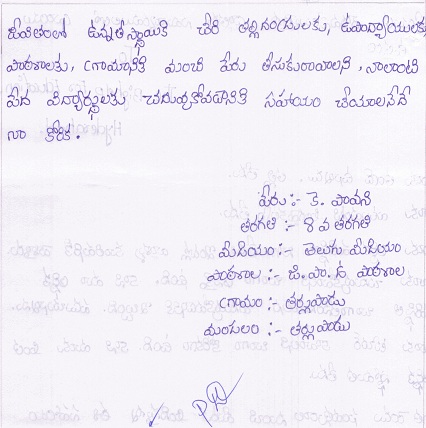 జీవితంలో ఉన్నతస్థాయికి చేరి తల్లిదండ్రులకు, ఉపాధ్యాయులకు,
పాఠశాలకు, గ్రామానికి మంచి పేరు తీసుకురావాలని, నాలాంటి
పేద విద్యార్థులకు చదువుకోవడానికి సహాయం చేయాలనేదే
నా కోరిక.
పేరు :- కె. పావని
తరగతి :- 8 వ తరగతి
మీడియం :- తెలుగు మీడియం
పాఠశాల :- జి.పా.ప పాఠశాల
గ్రామం :- తర్లుపాడు
మండలం :- తర్లుపాడు